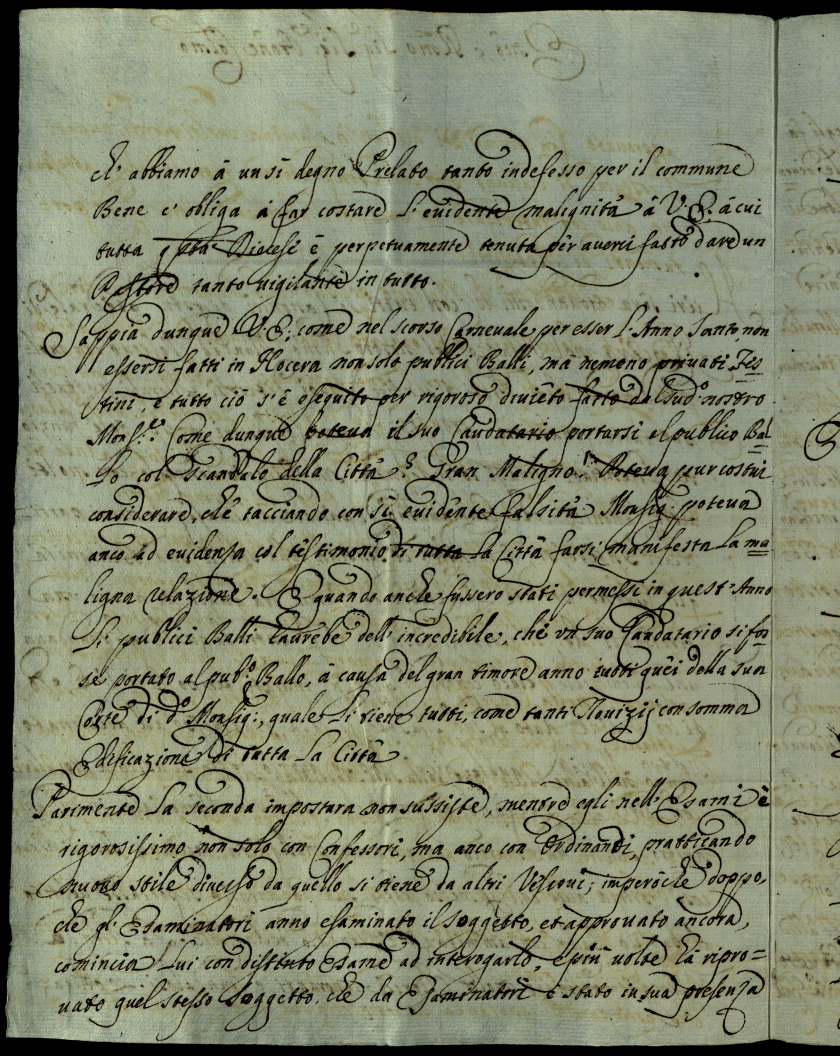 ch' abbiamo à un sì degno Prelato tanto indefesso per il commune
Bene c' obliga à far costare l' evidente malignità à V. E. à cui
tutta Diocesi è perpetuamente tenuta per averci fatto dare un
Pastore tanto vigilante in tutto.
Sappia dunque V. E. come nel scorso Carnevale per esser l' Anno Santo, non
essersi fatti in Nocera non solo publici Balli, mà nemeno privati Fes=
tini, e tutto ciò s' è eseguito per rigoroso divieto fatto dal Sud.o nostro
Mons.re Come dunque poteva il suo Caudatario portarsi el publico Bal=
lo col scandalo della Città? Gran Maligno! Poteva pur costui
considerare, che tacciando con sì evidente falsità Monsig. poteva
anco ad evidenza col testimonio di tutta la Città farsi manifesta la ma=
ligna relazione. E quando anche fussero stati permessi in quest' Anno
li publici Balli haurebe dell' incredibile, che un suo Caudatario si fos=
se portato al pub.o Ballo, à causa del gran timore anno tutti quei della sua
Corte di d.o Monsig., quale li tiene tutti, come tanti Novizij con somma
Edificazione di tutta la Città
Parimente la seconda impostura non sussiste, mentre egli nell' Esami è
rigorosissimo non solo con Confessori, ma anco con Ordinandi, pratticando
nuovo stile diverso da quello si tiene da altri Vescovi; imperòche doppo,
che gl' Esaminatori anno esaminato il soggetto, et approvato ancora,
comincia Lui con distinto Esame ad interogarlo, e più volte hà ripro=
vato quel stesso soggetto, che da Esaminatori è stato in sua presenza